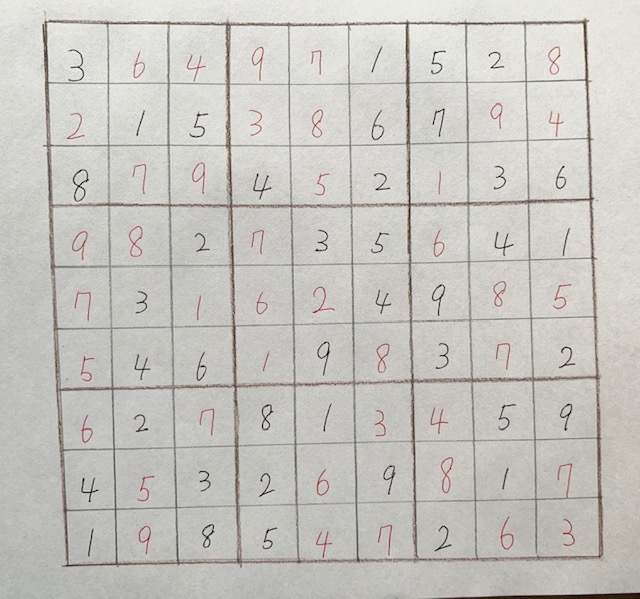 3 6 4 9 7 1 5 2 8
2 1 5 3 8 6 7 9 4
8 7 9 4 5 2 1 3 6
9 8 2 7 3 5 6 4 1
7 3 1 6 2 4 9 8 5
5 4 6 1 9 8 3 7 2
6 2 7 8 1 3 4 5 9
4 5 3 2 6 9 8 1 7
1 9 8 5 4 7 2 6 3